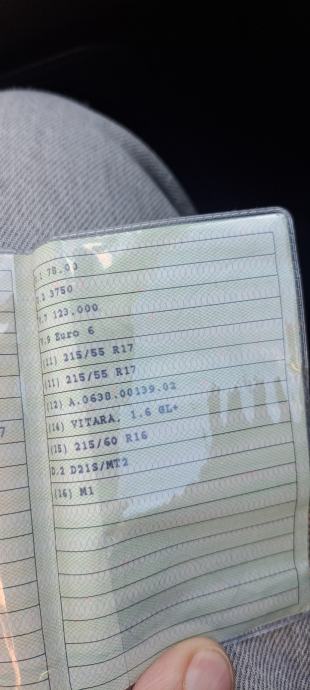 78.00
3750
123.000
Euro 6
(11) 215/55 R17
(11) 215/55 R17
(12) A.0638.00139.02
(14) VITARA, 1.6 GL+
(15) 215/60 R16
D.2 D21S/MT2
(16) M1
7